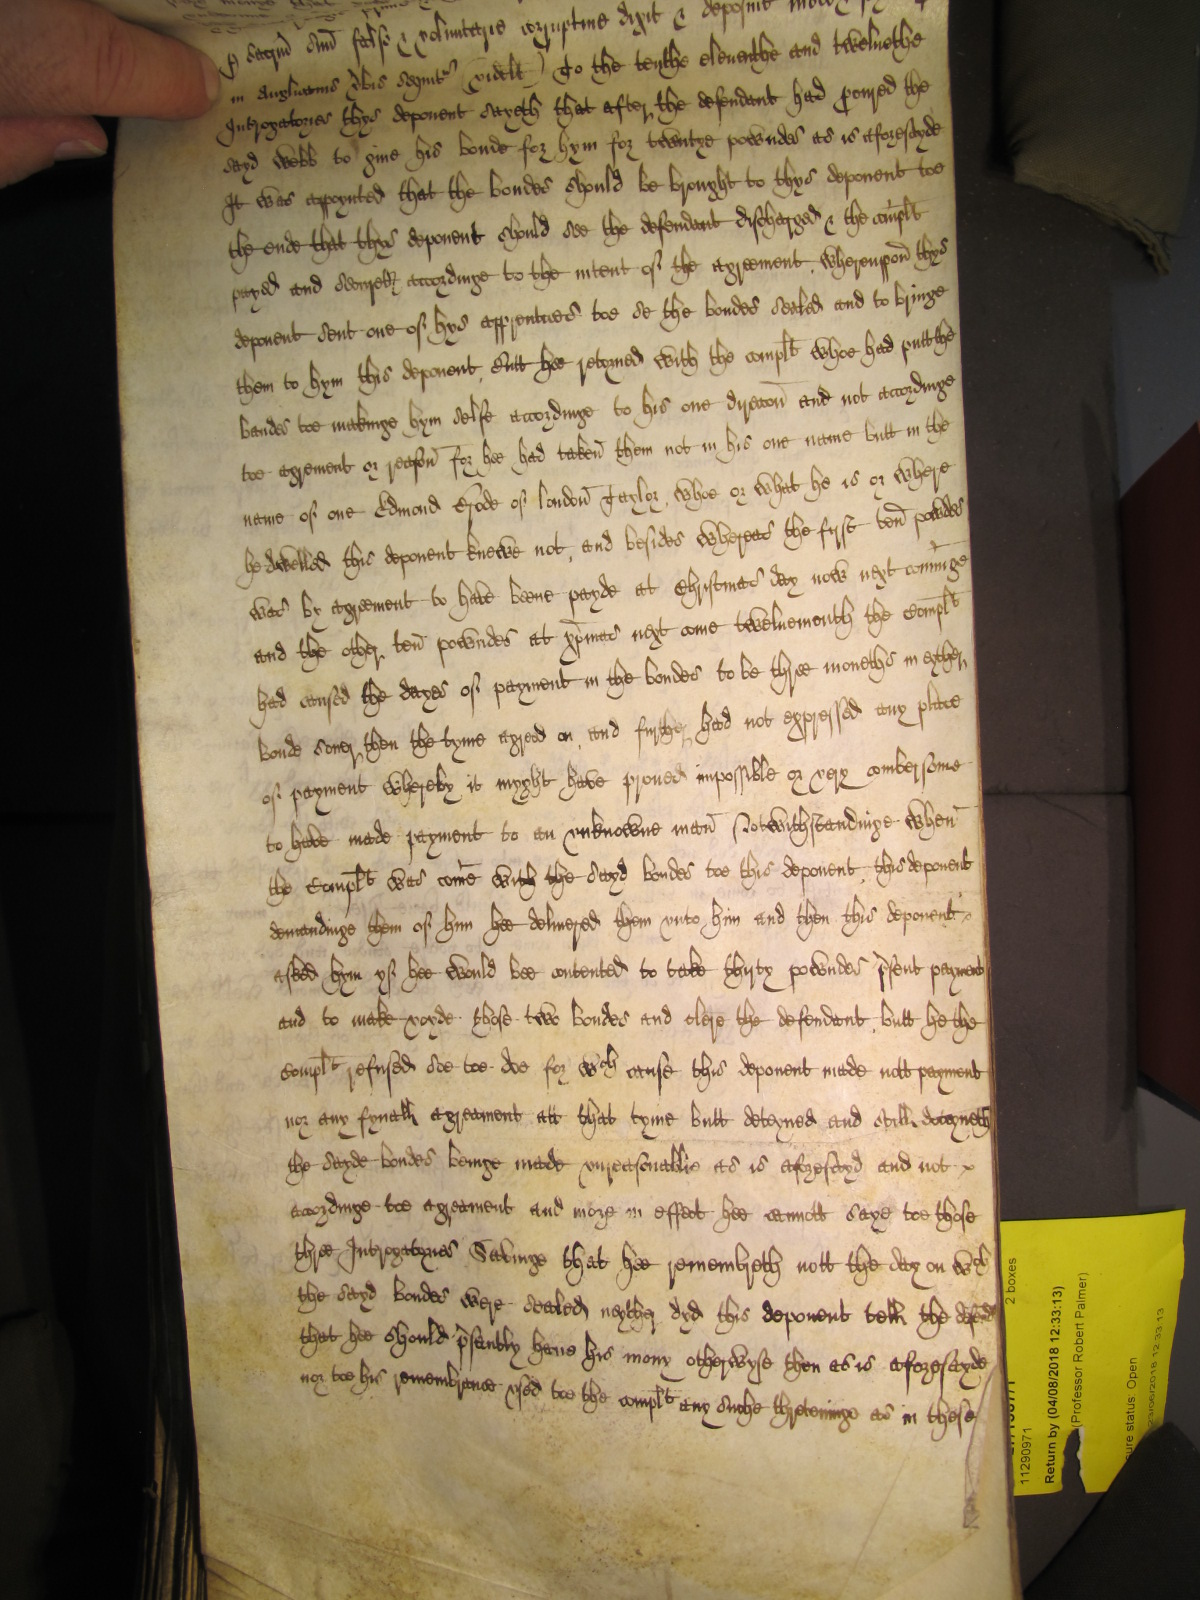 sacrum suum false & voluntarie corruptive dixit & deposuit
in Anglicanis verbis sequent videlt To the tenthe eleventhe and twelvethe
Introgatories thys deponent sayeth that after the defendant had procured the
sayd Webb to give his bonde for hym for twentye powndes as is aforesayde
It was appoynted that the bondes should be brought to thys deponent toe
the ende that thys deponent should see the defendant discharged & the complt
payed and accordinge to the intent of the agreement wherevppon thys
deponent sent one of hys apprentices toe se the bondes sealed and to bringe
them to hym this deponent, Butt hee retorned with the complt whoe had putt the
bandes toe makinge hym selfe accordinge to his one direcon and not accordinge
toe agrement or reason for hee had taken them not in his one name butt in the
name of one Edmond of london Taylor, whoe or what he is or where
he dwelled this deponent knewe not, and besides whereas the first ten powdes
was by agreement to have beene payde at Christmas day now next cominge
and the other ten powndes at xpmas next come twelvemonth the Complt
had caused the dayes of payment in the bondes to be three moneths in eyther
bonde soner then the tyme agreed on, and further had not expressed any place
of payment whereby it myght have proved impossible or very combersome
to have made payment to an vnknowne man Notwithstandinge when
the Complt was come with the sayd bondes toe this deponent, this deponent
demandinge them of him hee delivered them vnto him and then this deponent
asked hym yf hee would bee contented to take thirty powndes psent payment
and to make voyde those two bondes and clere the defendant, butt he the
Complt refused soe toe doe for wch cause this deponent made nott payment
nor any fynall agreament att that tyme butt deteyned and still deteyneth
the sayde bondes beinge made vnreasonablie as is aforesayd and not
accordinge toe agreament and more in effect hee cannott saye toe those
three Introgatoryes Savinge that hee remembreth nott the day on wch
the sayd bondes were sealed, neyther dyd this deponent tell the defend
that hee should psently have his mony otherwyse then as is aforesayde
nor toe his remembrance vsed toe the complt any suche thretninge as in these
2 boxes
11290971
Return by (04/08/2018 12:33:13)
(Professor Robert Palmer)
ure status: Open
23/06/2018 12:33:13